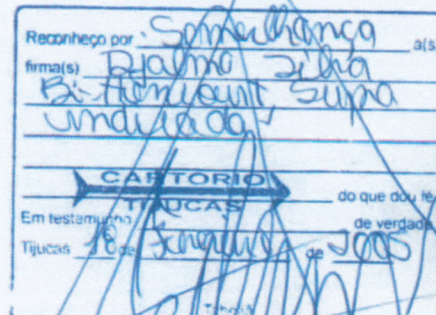 Reconheço por Semelhança a(s)
firma(s) Djalma Silva
Supra
indicado
CARTORIO
TIJUCAS
do que dou fé
Em testemunho de verdade
Tijucas 18 de Fevereiro de 2005